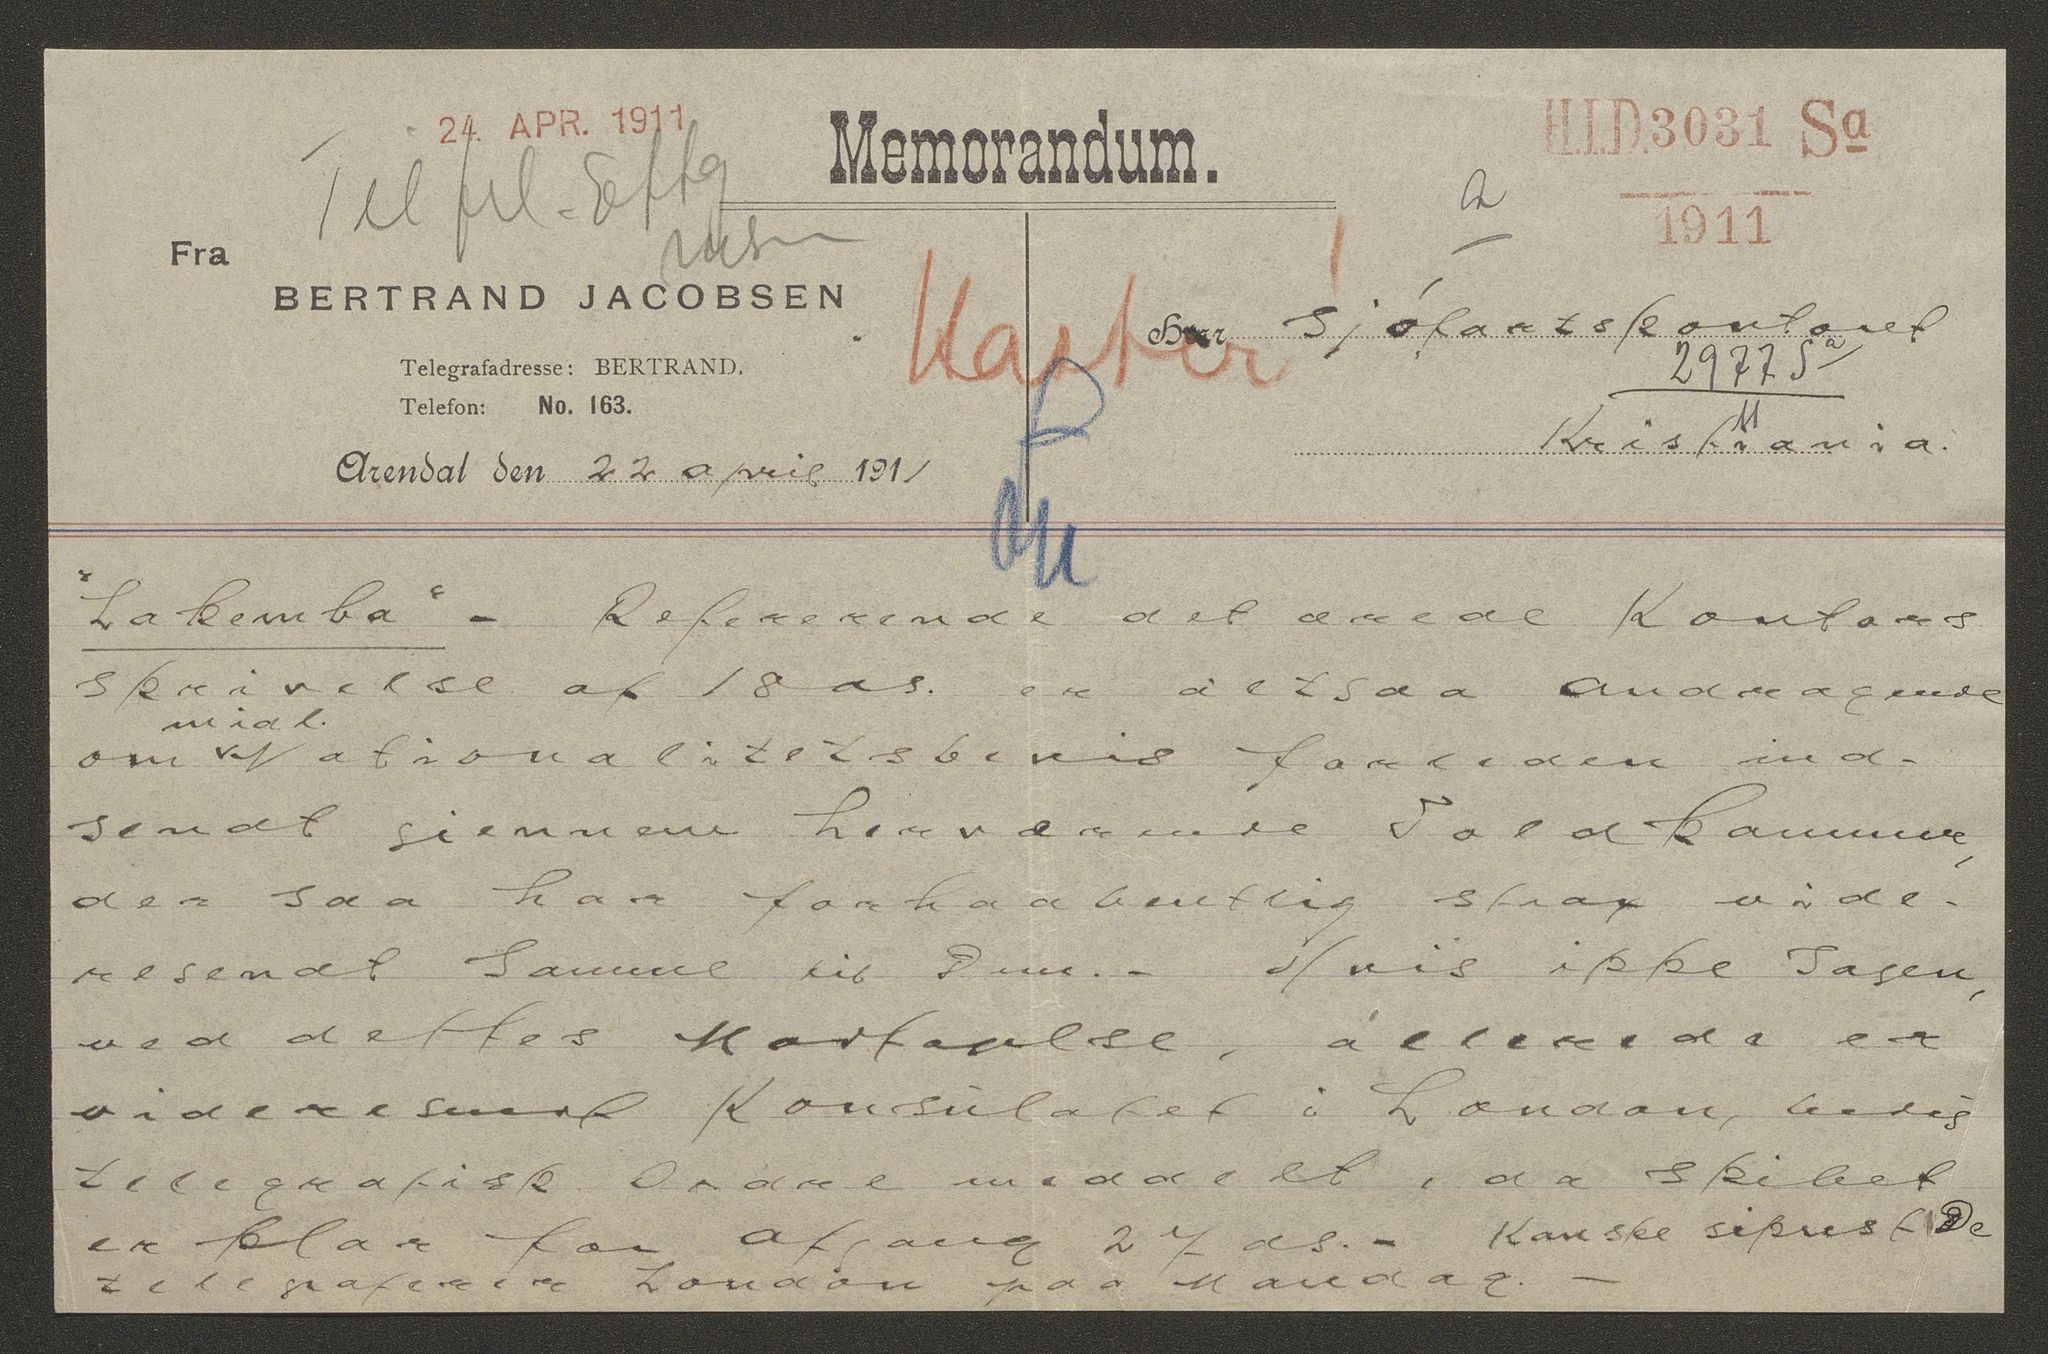 24. APR. 1911
Memorandum.
H.I.D. 3031 Sa
1911
Fra
BERTRAND JACOBSEN
Telegrafadresse: BERTRAND.
Telefon: No. 163.
Arendal den 22 april 1911
Haster!
Herr Sjöfartskontoret
2977 Sa
11
Kristiania.
"Lakemba" - Refererende det ærede Kontors
skrivelse af 18 ds. er altsaa Andragende
midl.
om Nationalitetsbevis forleden ind-
sendt giennem herværende Toldkammer,
der saa har forhaabentlig strax vide-
resendt Samme til Dem. - Hvis ikke Sagen,
ved dettes Modtagelse, allerede er
videresendt Konsulatet i London, bedes
telegrafisk Ordre meddelt, da skibet
er klar for Afgang 27 ds. - Kanske sikrest De
telegraferer London paa Mandag. -